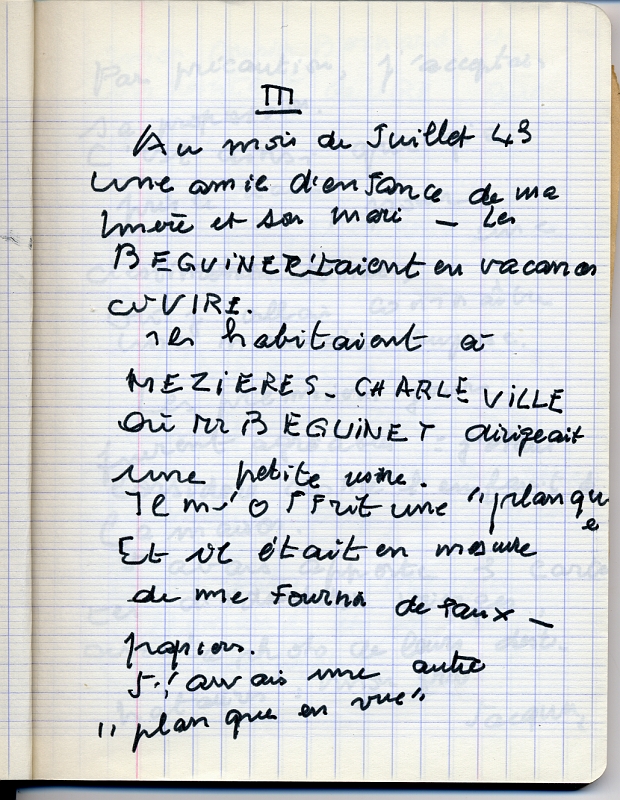 III
Au mois de Juillet 43
une amie d'enfance de ma
mère et son mari – Les
BEGUINET étaient en vacances
à VIRE.
ils habitaient à
MEZIERES-CHARLEVILLE
où Mr BEGUINET dirigeait
une petite usine.
Il m'offrit une "planque
Et il était en mesure
de me fournir de faux –
papiers.
J'avais une autre
"planque en vue"